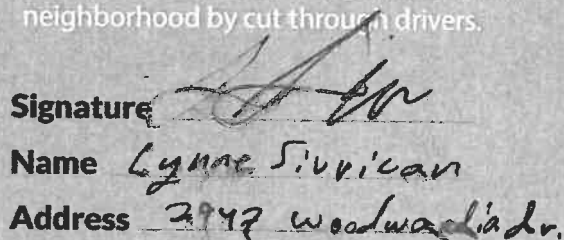 neighborhood by cut through drivers.
Signature
Name Lynne Sirrican
Address 2942 woodwardia dr.